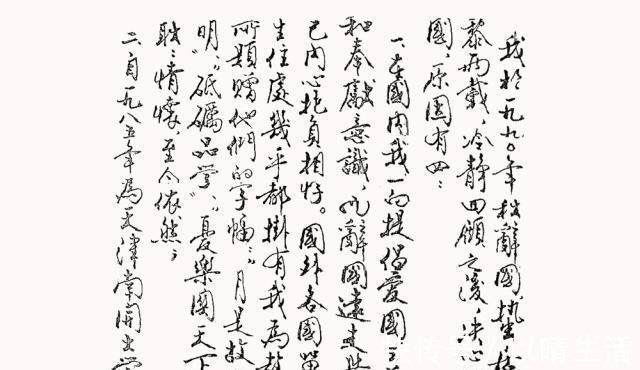 我於一九九〇年秋辭國執
黎兩載，冷靜回顧之後，决心
國，原因有四：
一、在國内我一向提倡愛國主
和奉獻意識，此辭國遠走
己内心抱負相悖。國外各國留
生住處幾乎都掛有我為
所題贈他們的字幅，“月是故
明”，“砥礪品學”，“憂樂國天下
耿耿情懷，至今依然；
二、自一九八五年為天津南開大學
以晴生活